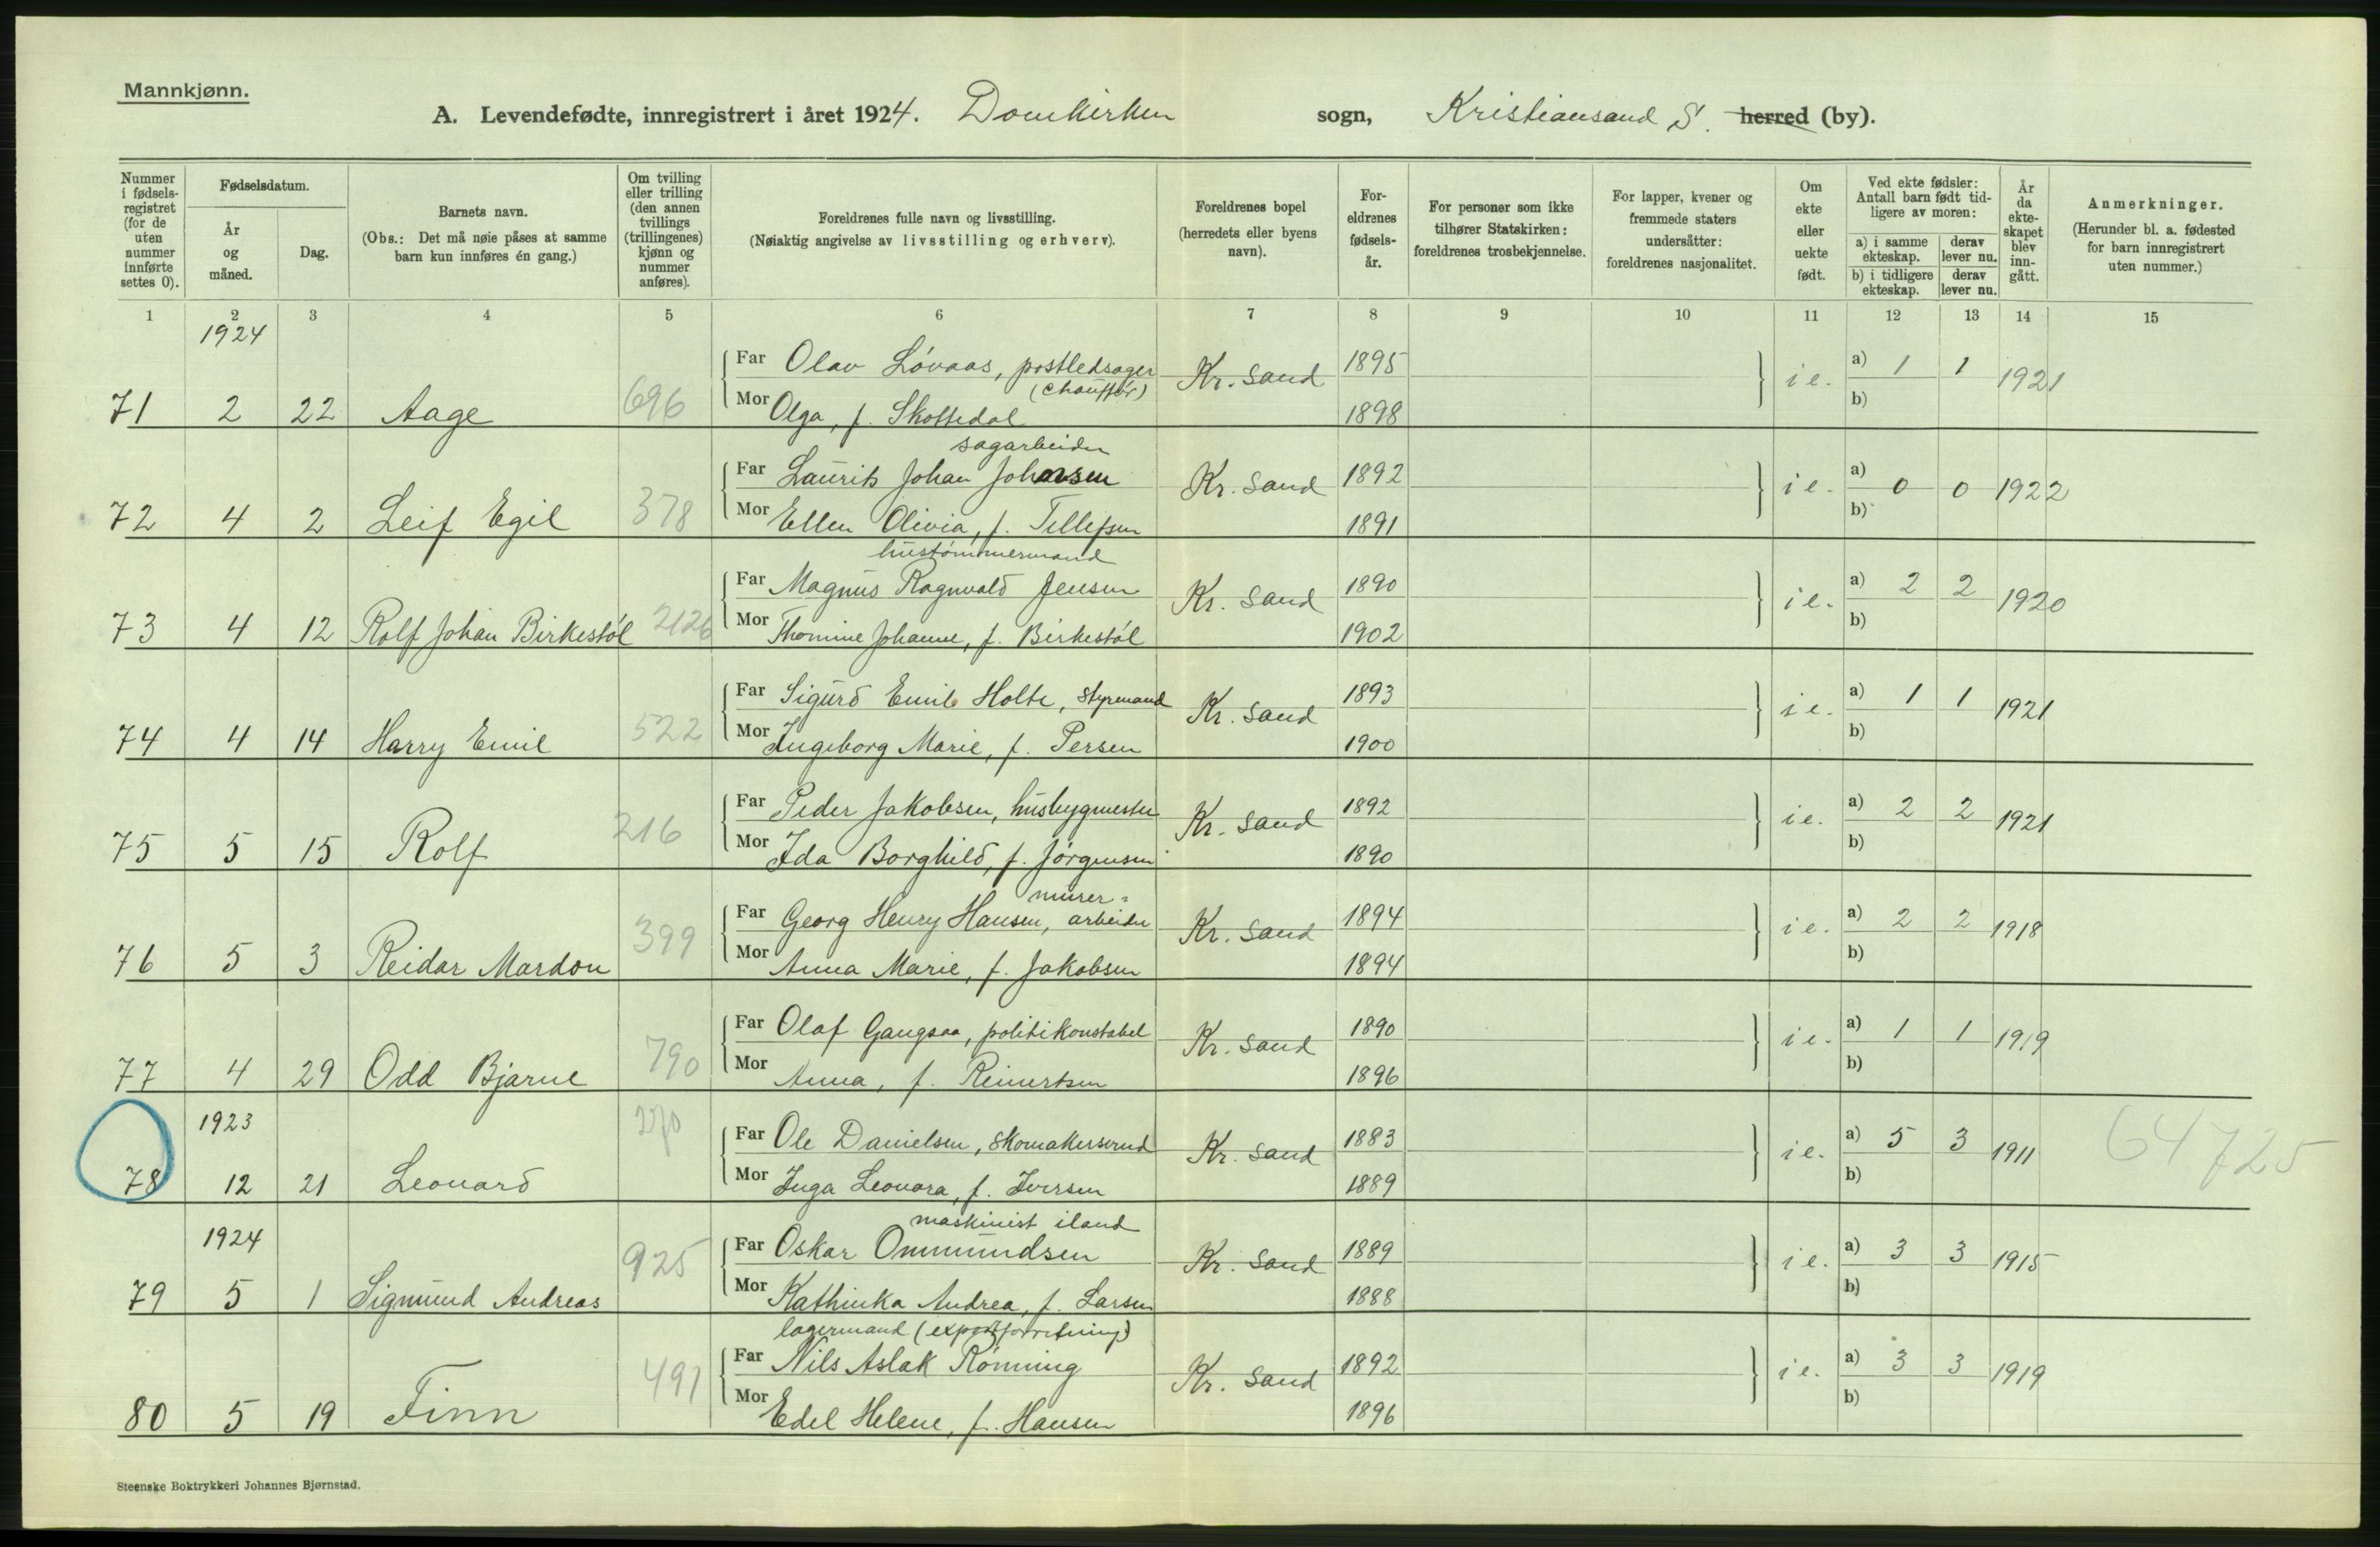 Mannkjønn.
A. Levendefødte, innregistrert i året 1924. Domkirken sogn, Kristiansand S. herred (by).
Nummer i fødsels-registret (for de uten nummer innførte settes 0).
Fødselsdatum.
År og måned.
Dag.
Barnets navn.
(Obs.: Det må nøie påses at samme barn kun innføres én gang.)
Om tvilling eller trilling (den annen tvillings (trillingenes) kjønn og nummer anføres).
Foreldrenes fulle navn og livsstilling.
(Nøiaktig angivelse av livsstilling og erhverv).
Foreldrenes bopel (herredets eller byens navn).
For-eldrenes fødsels-år.
For personer som ikke tilhører Statskirken: foreldrenes trosbekjennelse.
For lapper, kvener og fremmede staters undersåtter: foreldrenes nasjonalitet.
Om ekte eller uekte født.
Ved ekte fødsler: Antall barn født tid-ligere av moren:
a) i samme ekteskap.
derav lever nu.
b) i tidligere ekteskap.
derav lever nu.
År da ekte-skapet blev inn-gått.
Anmerkninger.
(Herunder bl. a. fødested for barn innregistrert uten nummer.)
1 2 3 4 5 6 7 8 9 10 11 12 13 14 15
1924
Far Olav Lóvaas, postledsager Kr. sand 1895 i e. a) 1 1 1921
(chauffór)
71 2 22 Aage 696 Mor Olga, f. Skottedal 1898 b)
sagarbeider
Far Laurits Johan Johansen Kr. sand 1892 i e. a) 0 0 1922
72 4 2 Leif Egil 378 Mor Ellen Olivia, f. Tellefsen 1891 b)
hustómmermand
Far Magnus Ragnvald Jensen Kr. sand 1890 i e. a) 2 2 1920
73 4 12 Rolf Johan Birkestól 2126 Mor Thomine Johanne, f. Birkestól 1902 b)
Far Sigurd Emil Holte, styrmand Kr. sand 1893 i e. a) 1 1 1921
74 4 14 Harry Emil 522 Mor Ingeborg Marie, f. Persen 1900 b)
Far Peder Jakobsen, husbygmester Kr. sand 1892 i e. a) 2 2 1921
75 5 15 Rolf 216 Mor Ida Borghild, f. Jórgensen 1890 b)
murer-
Far Georg Henry Hansen, arbeider Kr. sand 1894 i e. a) 2 2 1918
76 5 3 Reidar Mardon 399 Mor Anna Marie, f. Jakobsen 1894 b)
Far Olaf Gangsaa, politikonstabel Kr. sand 1890 i e. a) 1 1 1919
77 4 29 Odd Bjarne 790 Mor Anna, f. Reinertsen 1896 b)
1923
Far Ole Danielsen, skomakersvend Kr. sand 1883 i e. a) 5 3 1911 64725
78 12 21 Leonard Mor Inga Leonora, f. Iversen 1889 b)
1924
maskinist iland
Far Oskar Ommundsen Kr. sand 1889 i e. a) 3 3 1915
79 5 1 Sigmund Andreas 925 Mor Kathinka Andrea, f. Larsen 1888 b)
lagermand (exportforretning)
Far Nils Aslak Rónning Kr. sand 1892 i e. a) 3 3 1919
80 5 19 Finn 491 Mor Edel Helene, f. Hansen 1896 b)
Steenske Boktrykkeri Johannes Bjørnstad.